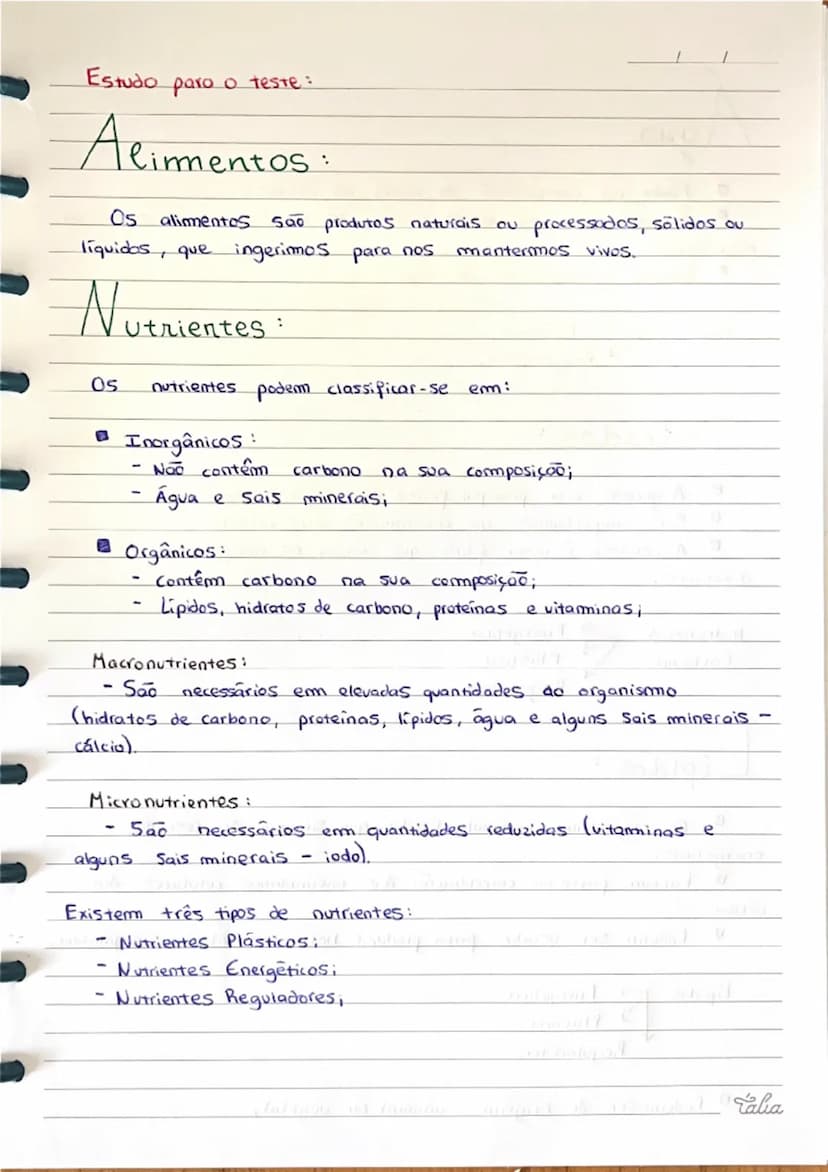 / /
Estudo para o teste:
Alimentos:
Os alimentos são produtos naturais ou processados, sólidos ou
líquidos, que ingerimos para nos mantermos vivos.
Nutrientes:
Os nutrientes podem classificar-se em:
Inorgânicos:
- Não contêm carbono na sua composição;
- Água e sais minerais;
Orgânicos:
- Contêm carbono na sua composição;
- Lípidos, hidratos de carbono, proteínas e vitaminas;
Macronutrientes:
- São necessários em elevadas quantidades ao organismo
(hidratos de carbono, proteínas, lípidos, água e alguns sais minerais -
cálcio).
Micronutrientes:
- São necessários em quantidades reduzidas (vitaminas e
alguns sais minerais - iodo).
Existem três tipos de nutrientes:
- Nutrientes Plásticos;
- Nutrientes Energéticos;
- Nutrientes Reguladores;
Tália